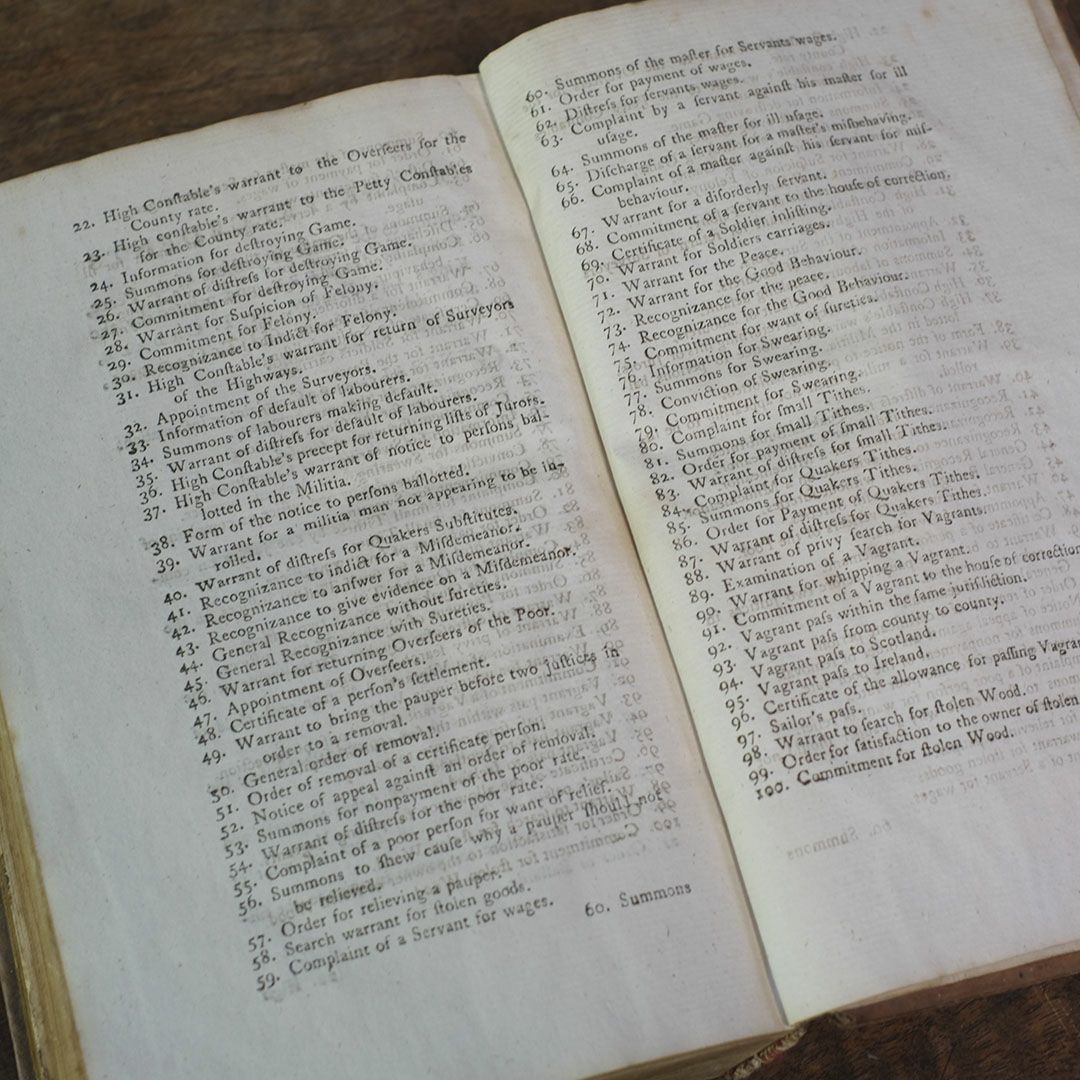 22. High Conſtable's warrant to the Overſeers for the
County rate.
23. High conſtable's warrant to the Petty Conſtables
for the County rate.
24. Information for deſtroying Game.
25. Summons for deſtroying Game.
26. Warrant of diſtreſs for deſtroying Game.
27. Commitment for deſtroying Game.
28. Warrant for Suſpicion of Felony.
29. Commitment for Felony.
30. Recognizance to Indict for Felony.
31. High Conſtable's warrant for return of Surveyors
of the Highways.
32. Appointment of the Surveyors.
33. Information of default of labourers.
34. Summons of labourers making default.
35. Warrant of diſtreſs for default of labourers.
36. High Conſtable's precept for returning liſts of Jurors.
37. High Conſtable's warrant of notice to perſons bal-
lotted in the Militia.
38. Form of the notice to perſons ballotted.
39. Warrant for a militia man not appearing to be in-
rolled.
40. Warrant of diſtreſs for Quakers Subſtitutes.
41. Recognizance to indict for a Miſdemeanor.
42. Recognizance to anſwer for a Miſdemeanor.
43. Recognizance to give evidence on a Miſdemeanor.
44. General Recognizance without ſureties.
45. General Recognizance with Sureties.
46. Warrant for returning Overſeers of the Poor.
47. Appointment of Overſeers.
48. Certificate of a perſon's ſettlement.
49. Warrant to bring the pauper before two juſtices in
order to a removal.
50. General order of removal.
51. Order of removal of a certificate perſon.
52. Notice of appeal againſt an order of removal.
53. Summons for nonpayment of the poor rate.
54. Warrant of diſtreſs for the poor rate.
55. Complaint of a poor perſon for want of relief.
56. Summons to ſhew cauſe why a pauper ſhould not
be relieved.
57. Order for relieving a pauper.
58. Search warrant for ſtolen goods.
59. Complaint of a Servant for wages.
60. Summons
60. Summons of the maſter for Servants wages.
61. Order for payment of wages.
62. Diſtreſs for ſervants wages.
63. Complaint by a ſervant againſt his maſter for ill
uſage.
64. Summons of the maſter for ill uſage.
65. Diſcharge of a ſervant for a maſter's miſbehaving.
66. Complaint of a maſter againſt his ſervant for miſ-
behaviour.
67. Warrant for a diſorderly ſervant.
68. Commitment of a ſervant to the houſe of correction.
69. Certificate of a Soldier inliſting.
70. Warrant for Soldiers carriages.
71. Warrant for the Peace.
72. Warrant for the Good Behaviour.
73. Recognizance for the peace.
74. Recognizance for the Good Behaviour.
75. Commitment for want of ſureties.
76. Information for Swearing.
77. Summons for Swearing.
78. Conviction of Swearing.
79. Commitment for Swearing.
80. Complaint for ſmall Tithes.
81. Summons for ſmall Tithes.
82. Order for payment of ſmall Tithes.
83. Warrant of diſtreſs for ſmall Tithes.
84. Complaint for Quakers Tithes.
85. Summons for Quakers Tithes.
86. Order for Payment of Quakers Tithes.
87. Warrant of diſtreſs for Quakers Tithes.
88. Warrant of privy ſearch for Vagrants.
89. Examination of a Vagrant.
90. Warrant for whipping a Vagrant.
91. Commitment of a Vagrant to the houſe of correction
92. Vagrant paſs within the ſame juriſdiction.
93. Vagrant paſs from county to county.
94. Vagrant paſs to Scotland.
95. Vagrant paſs to Ireland.
96. Certificate of the allowance for paſſing Vagran
97. Sailor's paſs.
98. Warrant to ſearch for ſtolen Wood.
99. Order for ſatisfaction to the owner of ſtolen
100. Commitment for ſtolen Wood.